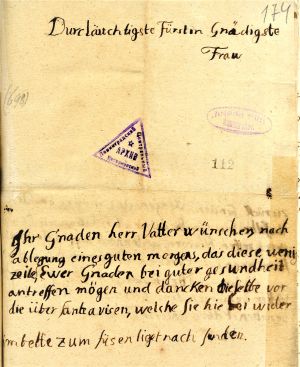 174
Durchläuchtigste Fürstin Gnädigste
Frau
(698)
АРХИВ
112
Ihr Gnaden herr Vatter wünschen nach
ablegung eines guten morgens, das diese weni
zeile, Ewer Gnaden bei guter gesundheit
antreffen mögen und dancken dieselbe vor
die über santa visen, welche Sie hie bei wider
im bette zum füsen liget nach senden.